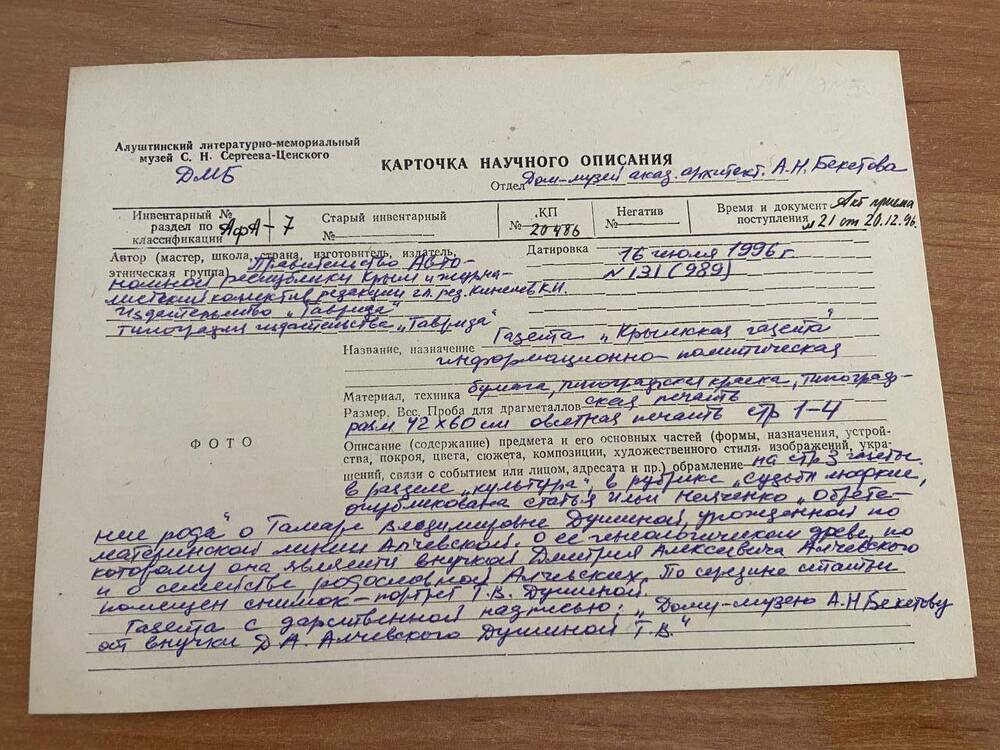 Алуштинский литературно-мемориальный
музей С. Н. Сергеева-Ценского
ДМБ
КАРТОЧКА НАУЧНОГО ОПИСАНИЯ
Отдел Дом-музей акад. архитект. А.Н. Бекетова
Инвентарный №
раздел по
классификации АфА-7
Старый инвентарный
№
КП
№ 20486
Негатив
№
Время и документ Акт приема
поступления №21 от 20.12.96.
Автор (мастер, школа, страна, изготовитель, издатель,
этническая группа) Правительство Авто-
номной республики Крым и журна-
листский коллектив редакции гл. ред.
Издательство „Таврида"
типография издательства „Таврида"
Датировка 16 июля 1996 г
N 131 (989)
Название, назначение Газета „Крымская газета"
информационно-политическая
Материал, техника бумага, типографская краска, типограф-
ская печать
Размер. Вес. Проба для драгметаллов
разм 42х60 см печать стр 1-4
ФОТО
Описание (содержание) предмета и его основных частей (формы, назначения, устрой-
ства, покроя, цвета, сюжета, композиции, художественного стиля, изображений, укра-
шений, связи с событием или лицом, адресата и пр.) обрамление на стр 3 газеты
в разделе „культура", в рубрике „Судьбы людские,
опубликована статья Ильи „Обрете-
ние рода" о Тамаре Владимировне Душиной, урожденной по
материнской линии Алчевской, о ее генеологическом древе, по
которому она является внучкой Дмитрия Алексеевича Алчевского
и о семействе, родословной Алчевских. По середине статьи
помещен снимок-портрет Т.В. Душиной.
Газета с дарственной надписью: „Дому-музею А.Н Бекетову
от внучки Д.А. Алчевского Душиной Т.В."